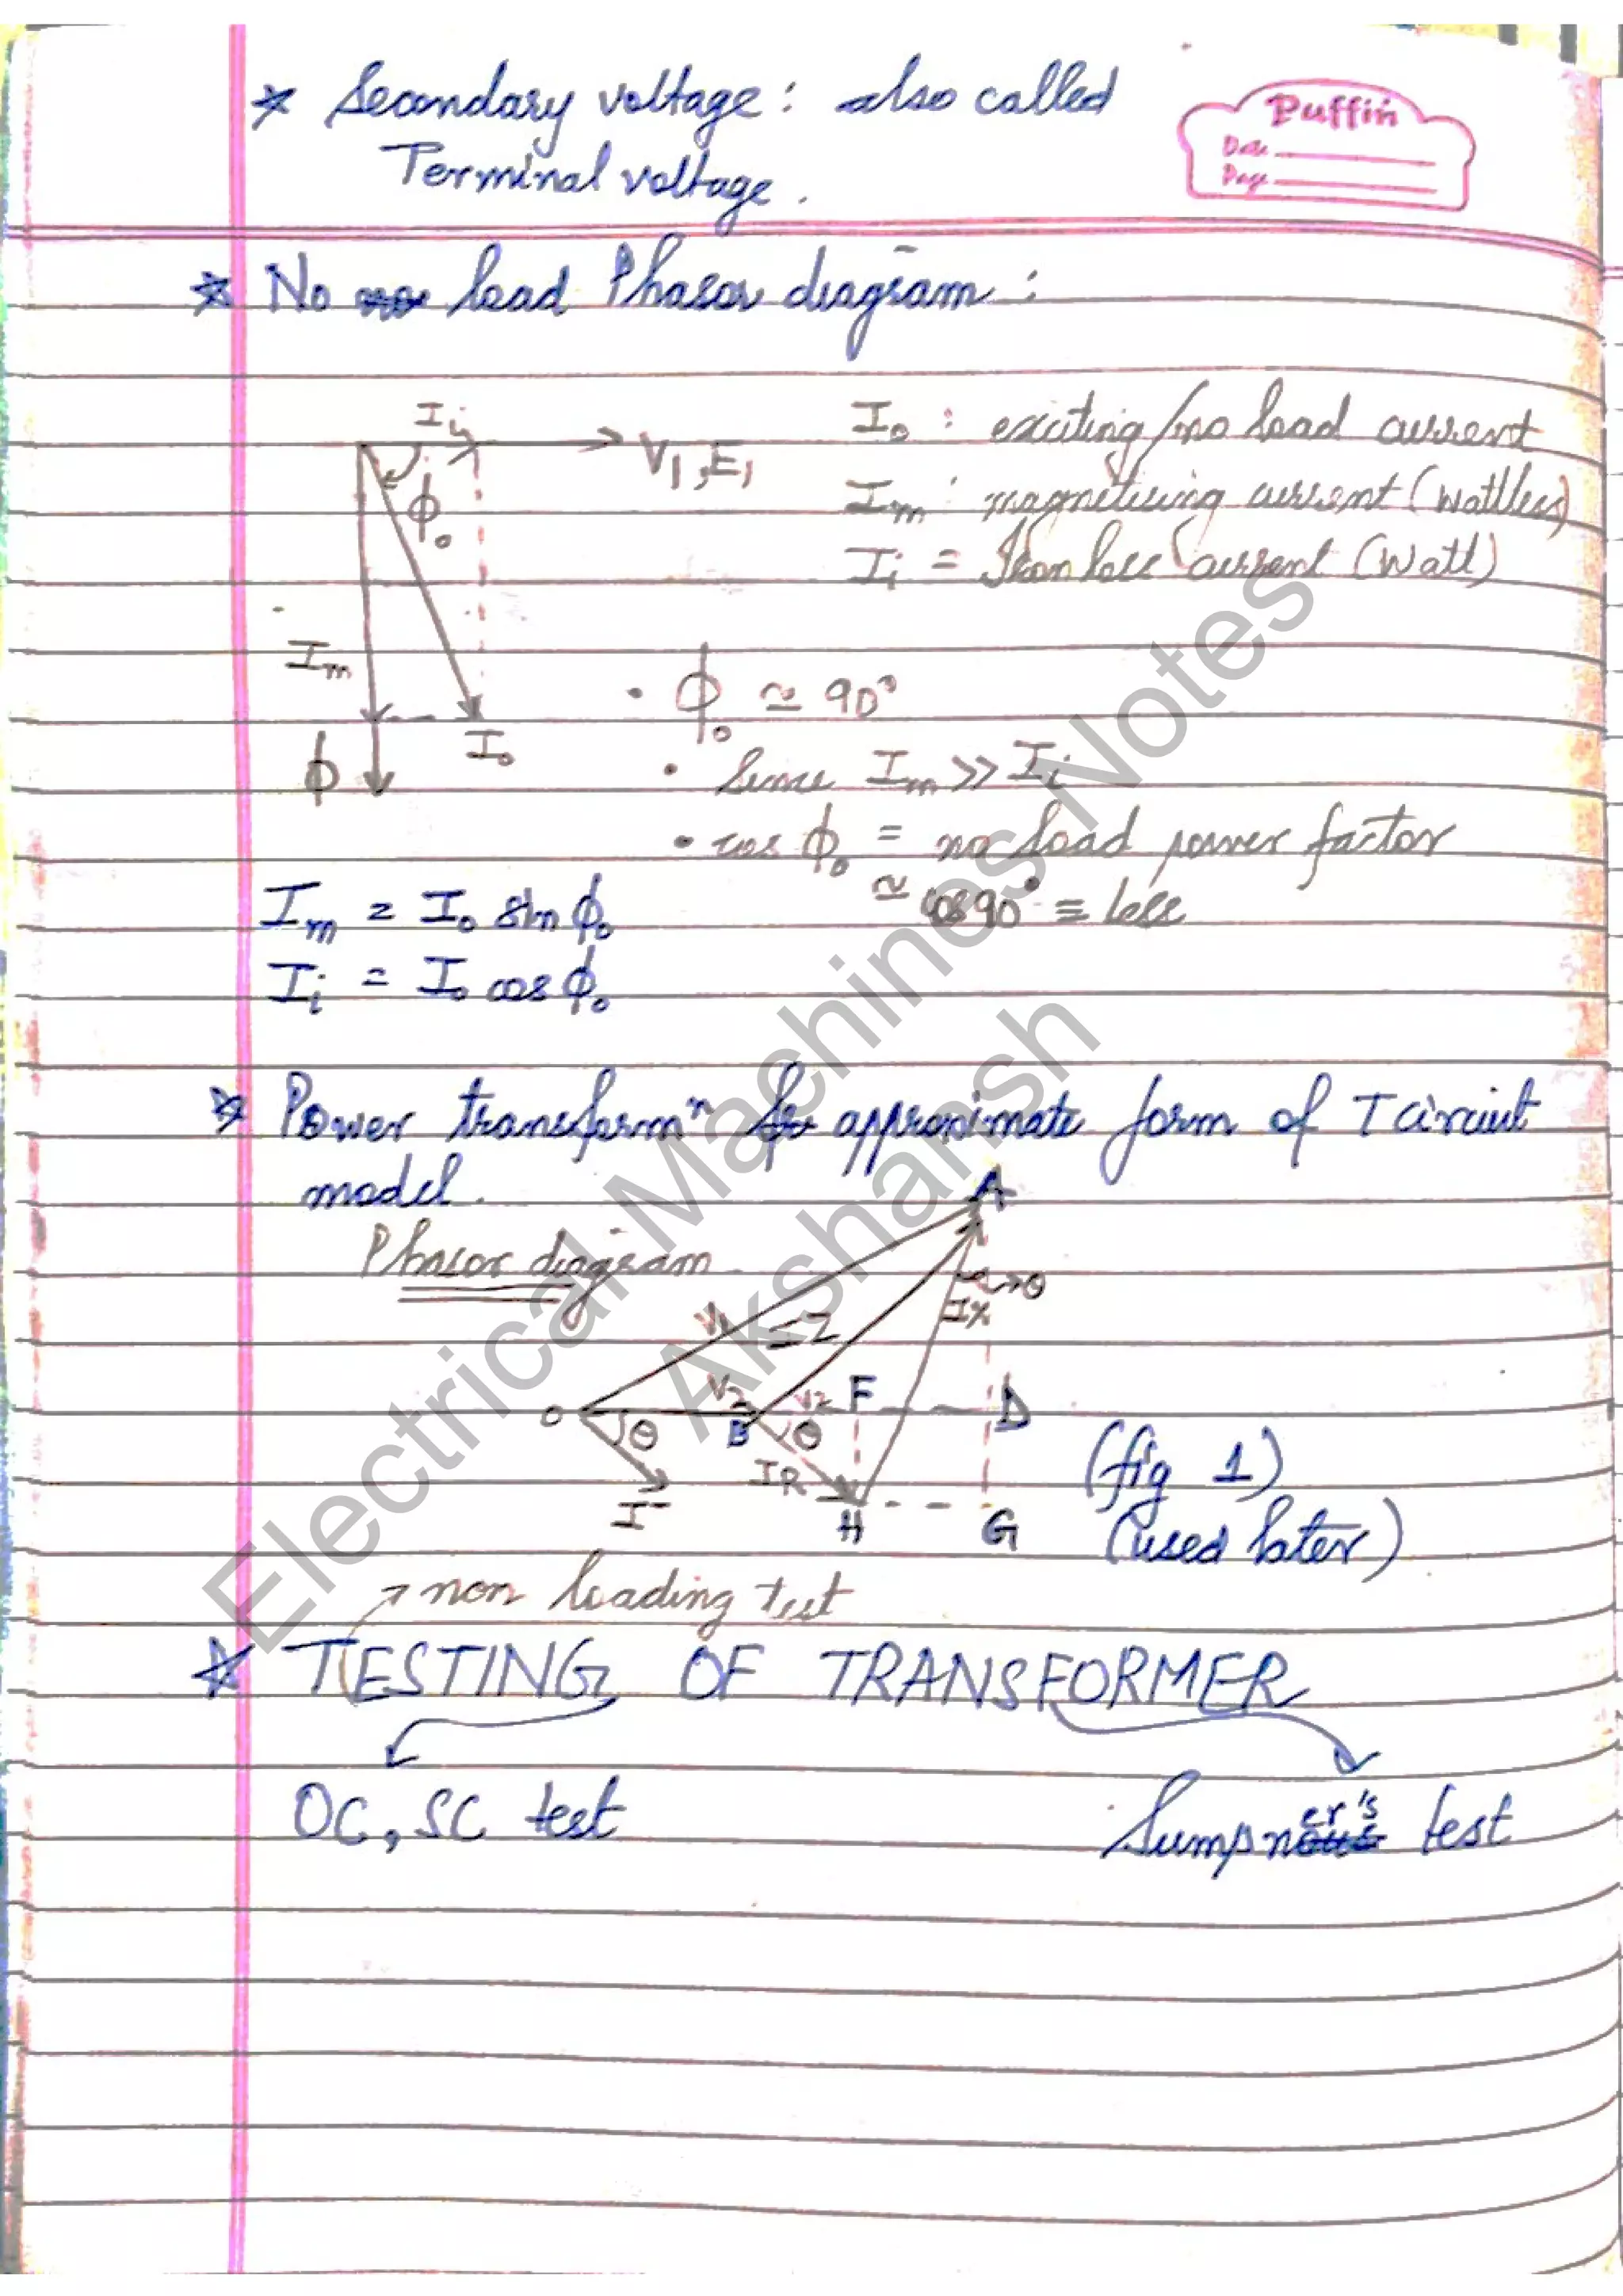 * Secondary voltage: also called
Terminal voltage.
Puffin
Date
Page
* No load Phasor diagram:
Ii
V1, E1
ϕ0
Im
I0
ϕ
I0 : exciting/no load current
Im : magnetising current (Wattless)
Ii = Iron loss current (Watt)
• ϕ0 ≃ 90°
• Since Im >> Ii
• cos ϕ0 = no load power factor
≃ cos 90° = less
Im = I0 sin ϕ0
Ii = I0 cos ϕ0
* Power transformⁿ approximate form of T circuit
model.
Phasor diagram
A
→θ
IX
V1
IZ
V2
V2
F
O
θ
B
θ
D
IR
I
H
G
(fig 1)
(used later)
→ non loading test
* TESTING OF TRANSFORMER
OC, SC test
Sumpner's test
Electrical Machines Notes
Akshansh